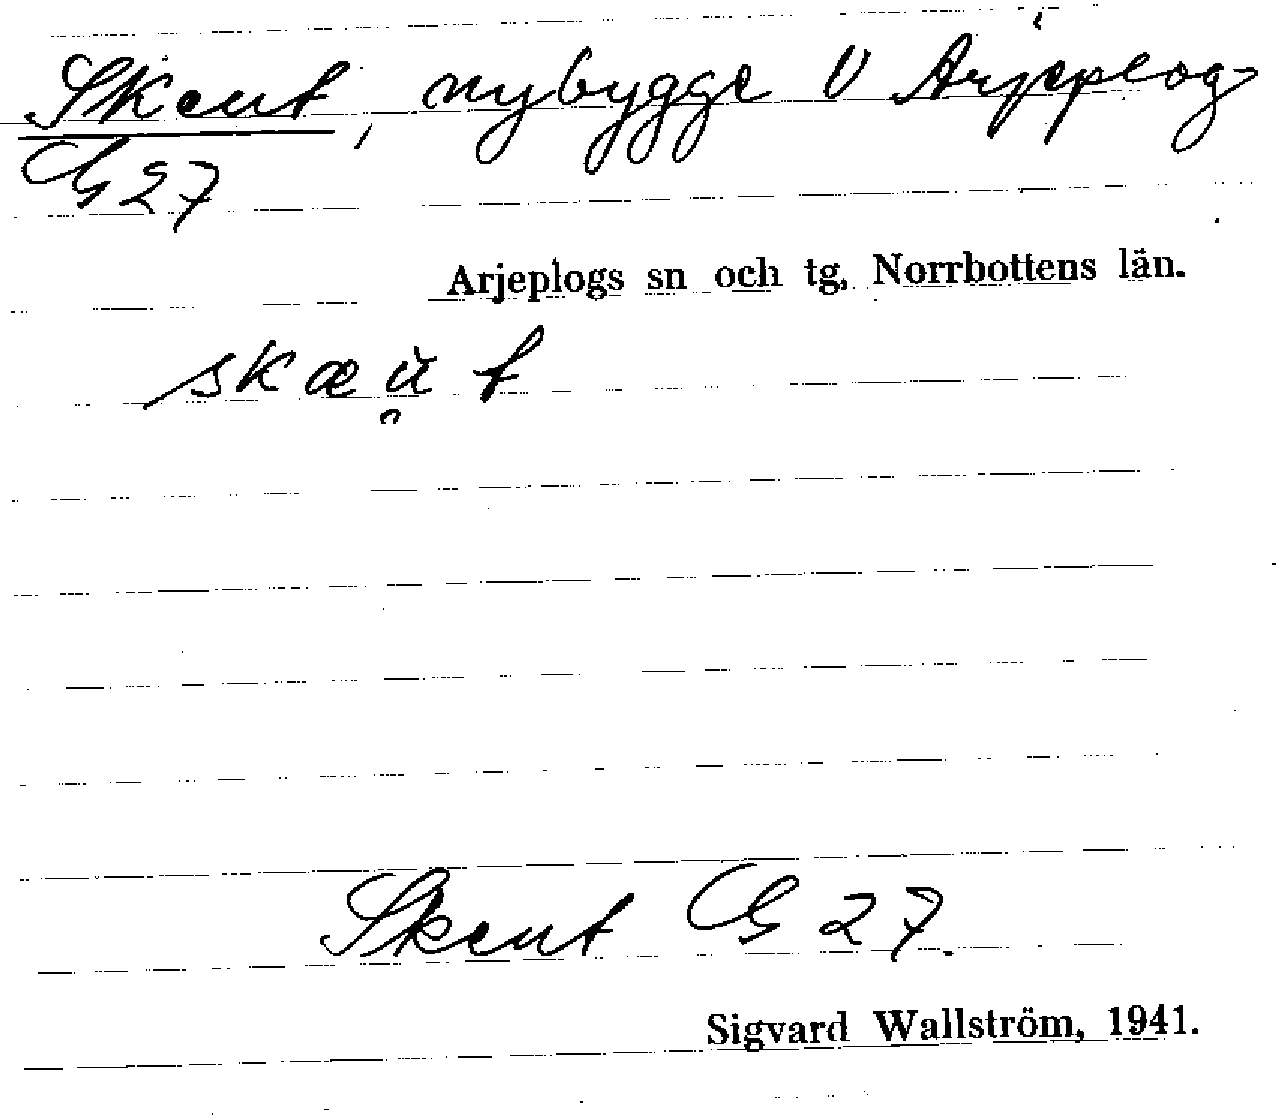 Skeut, nybygge V Arjeplog
G 27
Arjeplogs sn och tg, Norrbottens län.
skæù̯t
Skeut G 27.
Sigvard Wallström, 1941.